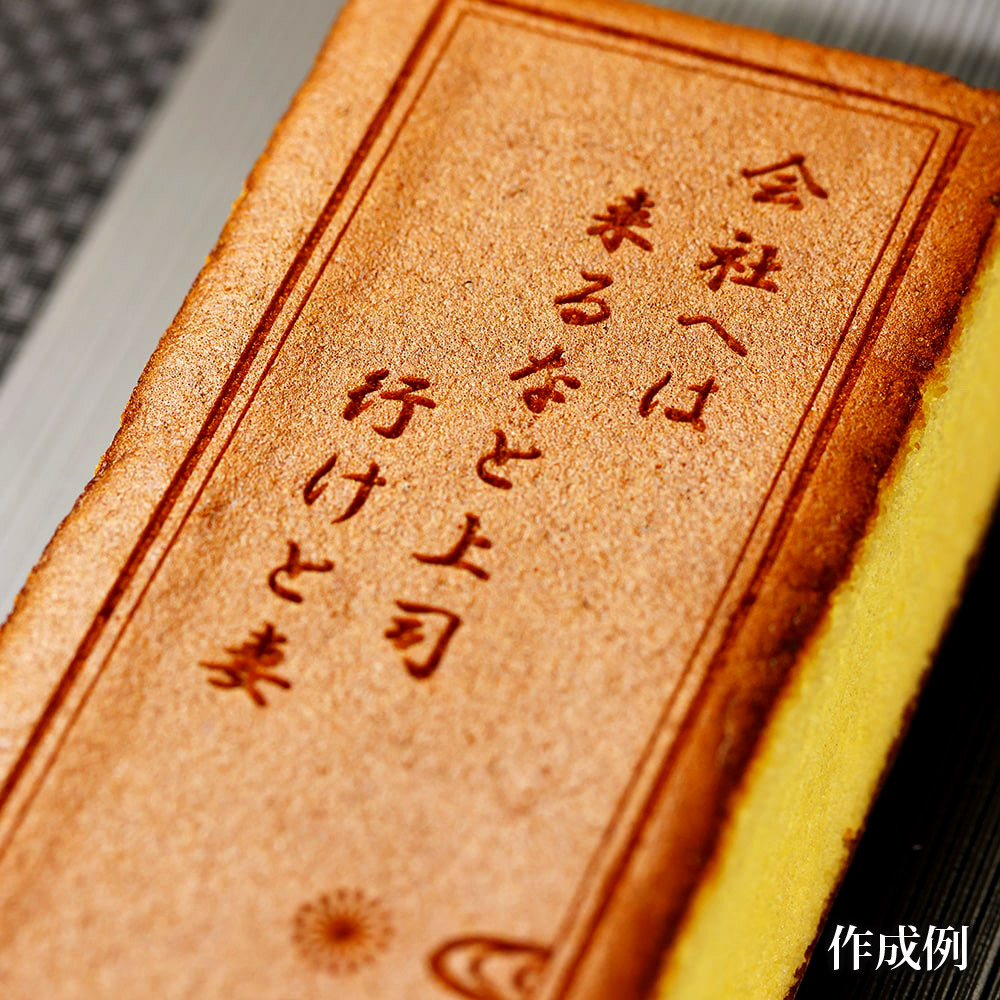 会社へは
来るなと上司
行けと妻
作成例